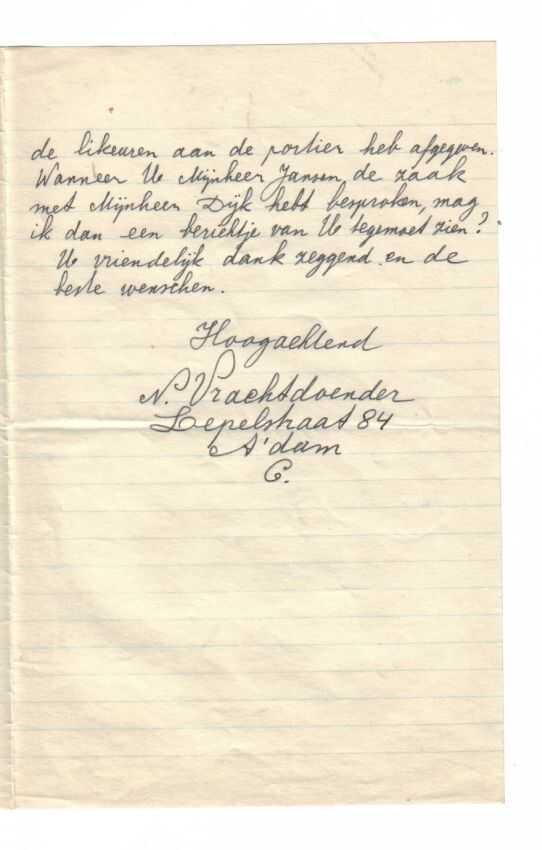 de likeuren aan de portier heb afgegeven.
Wanneer U Mijnheer Jansen, de zaak
met Mijnheer Dijk hebt besproken, mag
ik dan een berichtje van U tegemoet zien?
U vriendelijk dank zeggend en de
beste wenschen.
Hoogachtend
N. Vrachtdoender
Lepelstraat 84
A'dam
C.